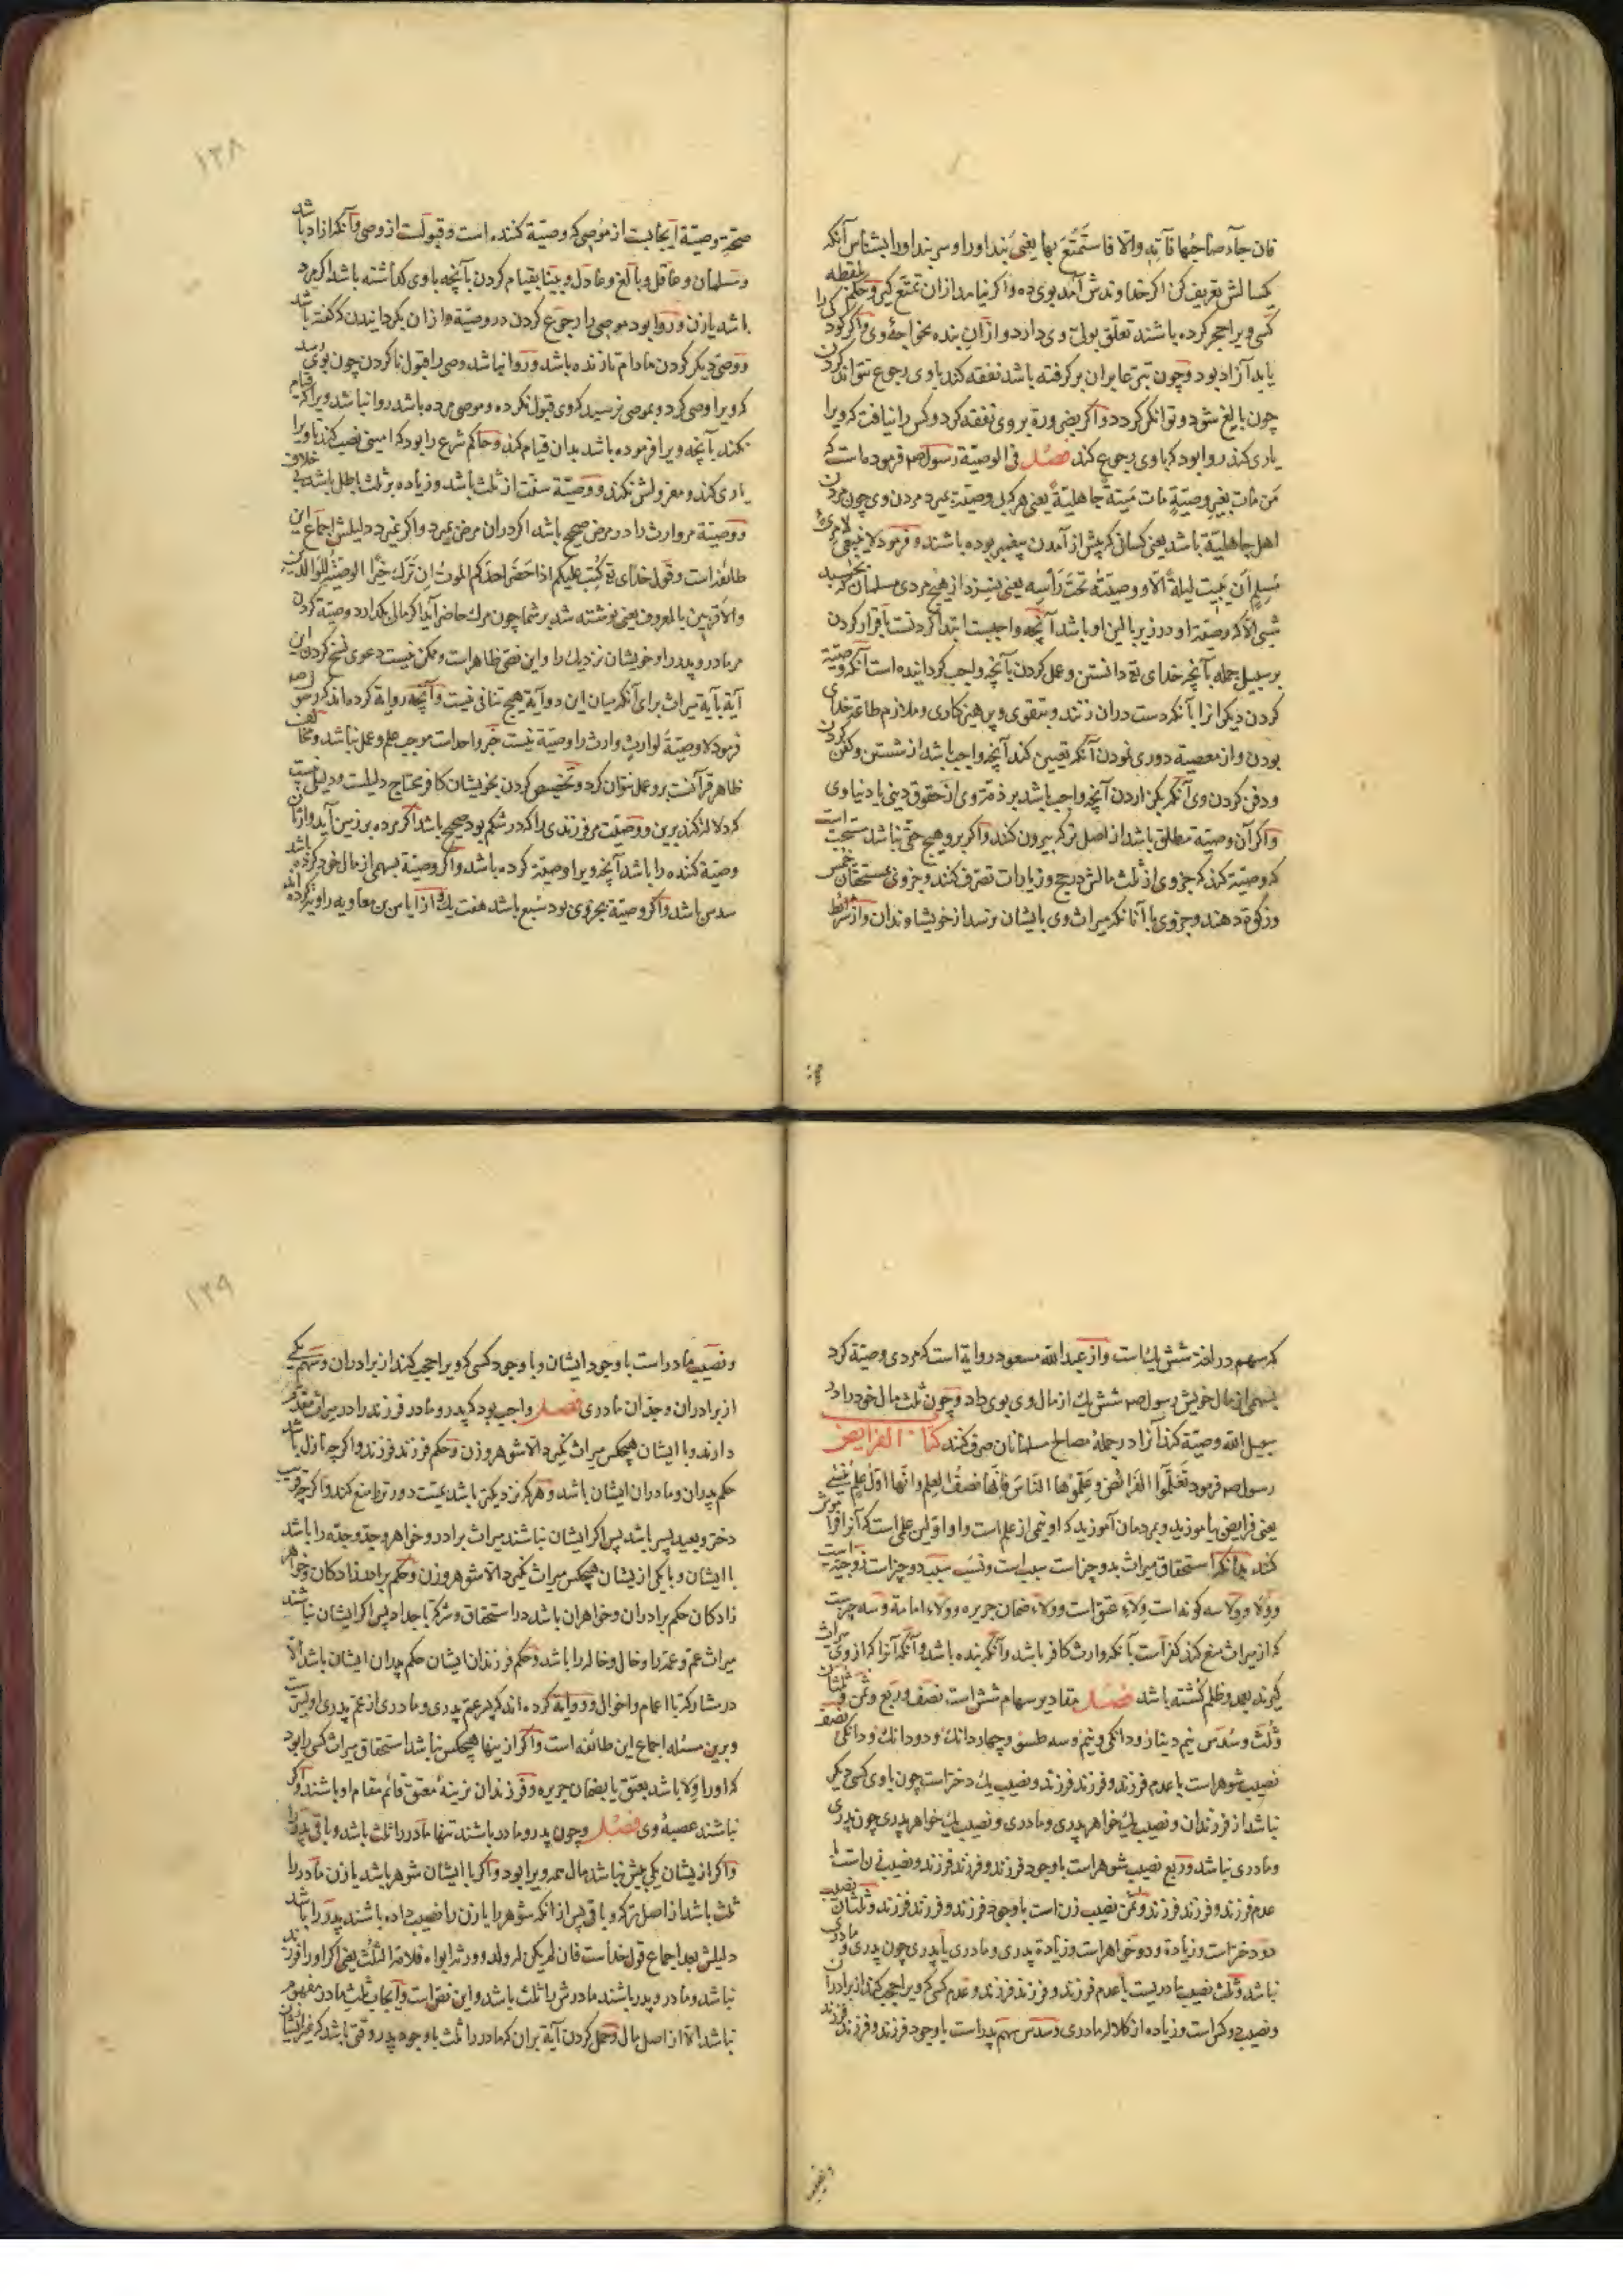 فان جاء صاحبُها فآتِه والّا فاستمتع بها یعنی بند او را و سربند او را بشناس آنکه
یکسالش تعریف کن اکر خداوندش آمد بوی ده و اکر نیامد از ان تمتع کیر و حکم لقطه
کسی ویرا حجر کرده باشند تعلّق بولیّ وی دارد و از آنِ بنده بخواجهٔ وی و اکر کودکی را
یابد آزاد بود و چون بتبرّعا بر ان بر کرفته باشد نفقه کند با وی رجوع نتواند کردن
چون بالغ شود و توانکر کردد و اکر بضرورة بر وی نفقه کرد و کس را نیافت که ویرا
یاری کند روا بود که با وی رجوع کند فصل فی الوصیّة رسول صم فرموده است که
مَن مات بغیر وصیّةٍ مات میتةً جاهلیّةً یعنی هر که بی وصیّت بمیرد مردن وی چون مردن
اهل جاهلیّة باشد یعنی کسانی که پیش از آمدن پیغمبر بوده باشند و فرمود لا ینبغی لامرئٍ
مُسلمٍ أن یبیت لیلةً الّا و وصیّتُه تحتَ رأسه یعنی نسزد از هیچ مردی مسلمان که بخسبد
شبی الّا که وصیّة او در زیر بالین او باشد آنچه واجبست ابتدا کردنست باقرار کردن
بر سبیل جمله بآنچه خدای تع دانستن و عمل کردن بآنچه واجب کردانیده است آنکه وصیّة
کردن دیکرانرا بآنکه دست دران زنند و بتقوی و پرهیزکاری و ملازم طاعة خدای
بودن و از معصیة دوری نمودن آنکه تعیین کند آنچه واجب باشد از شستن و کفن کردن
و دفن کردن وی آنکه بکزاردن آنچه واجب باشد بر ذمّة وی از حقوق دینی یا دنیاوی
و اکر آن وصیّة مطلق باشد از اصل ترکه بیرون کنند و اکر برو هیچ حقّی نباشد مستحبّ است
که وصیّة کند که جزوی از ثلث مالش در حج و زیارات تصرّف کنند و جزوی بمستحقّان خمس
و زکوة دهند و جزوی با آنانکه میراث وی بایشان نرسد از خویشاوندان و از شرایط
صحّت وصیّة ایجابیست از موصی که وصیّة کننده است و قبولست از وصی و آنکه آزاد باشد
و مسلمان و عاقل و بالغ و عادل و بینا بقیام کردن بآنچه با وی کذاشته باشد اکر مرد
باشد یا زن و روا بود موصی را رجوع کردن در وصیّة و از ان بکردانیدن که کفته باشد
و وصی دیکر کردن مادام تا زنده باشد و روا نباشد وصی را قبول ناکردن چون بوی رسد
که ویرا وصی کرد و بموصی نرسید که وی قبول نکرده و موصی مرده باشد روا نباشد ویرا که قیام
نکند بآنچه ویرا فرموده باشد بدان قیام کند و حاکم شرع را بود که امینی نصب کند تا ویرا
یاری کند و معزولش نکند و وصیّة سنّت از ثلث باشد و زیاده بر ثلث باطل باشد بی خلاف
و وصیّة مر وارث را در مرض صحیح باشد اکر دران مرض بمیرد و اکر نمیرد دلیلش اجماع این
طائفه است و قول خدای تع کُتِبَ علیکم اذا حَضَر احدَکم الموتُ ان تَرَکَ خیرًا الوصیّةُ للوالدین
والاقربین بالمعروف یعنی نوشته شد بر شما چون مرک حاضر آید اکر مالی بکذارد وصیّة کردن
مر مادر و پدر را و خویشان نزدیک را و این نصّی ظاهر است و ممکن نیست دعوی نسخ کردن این
آیة بآیة میراث برای آنکه میان این دو آیة هیچ تنافی نیست و آنچه روایة کرده اند که رسول صم
فرمود لا وصیّةَ لوارثٍ وارث را وصیّة نیست خبر واحد است موجب علم و عمل نباشد و مخالف
ظاهر قرآنست برو عمل نتوان کرد و تخصیص کردن بخویشان کافر محتاج دلیلست و دلیل نیست
که دلالة کند برین و وصیّت مر فرزندی را که در شکم بود صحیح باشد اکر مرده بر زمین آید وارثان
وصیّة کننده را باشد آنچه ویرا وصیّة کرده باشد و اکر وصیّة بسهمی از مال خود کرده باشد
سدس باشد و اکر وصیّة بجزوی بود سُبع باشد هفت یک و از ایاس بن معاویه روایة کرده اند
۱۳۸
که سهم در لغة شش یک است و از عبد الله مسعود روایة است که مردی وصیّة کرد
بسهمی از مال خویش رسول صم شش یک از مال وی بوی داد و چون ثلث مال خود را در
سبیل الله وصیّة کند آنرا در جملهٔ مصالح مسلمانان صرف کنند کتاب الفرایض
رسول صم فرمود تَعَلَّموا الفرائضَ و علِّموها الناسَ فانّها نصفُ العلم و انّها اوّلُ علمٍ یُنسی
یعنی فرایض بیاموزید و بمردمان آموزید که او نیمی از علم است و او اوّلین علمی است که آنرا فراموش
کنند بدانکه استحقاق میراث بدو چیز است سبب است و نسب سبب دو چیز است زوجیّة است
و ولا و ولا سه کونه است ولاء عتق است و ولاء ضمان جریره و ولاء امامة و سه چیزست
که از میراث منع کند کفر است بآنکه وارث کافر باشد و آنکه بنده باشد و آنکه آنرا که از وی میراث
کیرند بعمد و ظلم کشته باشد فصل مقادیر سهام شش است نصف و ربع و ثمن و ثلثان
و ثلث و سُدس نیم دینار و دانکی و نیم و سه طسّوج و چهار دانک و دو دانک و دانکی نصف
نصیب شوهر است با عدم فرزند و فرزند فرزند و نصیب یک دختر است چون با وی کسی دیکر
نباشد از فرزندان و نصیب یک خواهر پدری و مادری و نصیب یک خواهر پدری چون پدری
و مادری نباشد و ربع نصیب شوهر است با وجود فرزند و فرزند فرزند و نصیب زن است با
عدم فرزند و فرزند فرزند و ثمن نصیب زن است با وجود فرزند و فرزند فرزند و ثلثان نصیب
دو دختر است و زیادة و دو خواهر است و زیادة پدری و مادری یا پدری چون پدری و مادری
نباشد و ثلث نصیب مادریست با عدم فرزند و فرزند فرزند و عدم کسی که ویرا حجب کند از برادران
و نصیب دو کس است و زیاده از کلالهٔ مادری و سدس سهم پدر است با وجود فرزند و فرزند فرزند
و نصیب مادر است با وجود ایشان و با وجود کسی که ویرا حجب کند از برادران و سهم یکی
از برادران و جدّان مادری فصل واجب بود که پدر و مادر فرزند را در میراث مقدّم
دارند و با ایشان هیچکس میراث نکیرد الّا شوهر و زن و حکم فرزند فرزند و اکر چه نازل باشد
حکم پدران و مادران ایشان باشد و هر که نزدیکتر باشد بمیّت دورتر را منع کند و اکر چه قریب
دختر و بعید پسر باشد پس اکر ایشان نباشند میراث برادر و خواهر و جدّ و جدّه را باشد
با ایشان و با یکی از یشان هیچکس میراث نکیرد الّا شوهر و زن و حکم برادرزادکان و خواهر
زادکان حکم برادران و خواهران باشد در استحقاق و شرکة با جدّ ام پس اکر ایشان نباشند
میراث عم و عمّه را و خال و خاله را باشد و حکم فرزندان ایشان حکم پدران ایشان باشد الّا
در مشارکة با اعمام و اخوال و روایة کرده اند که پسر عم پدری و مادری از عم پدری اولیترست
و برین مسئله اجماع این طائفه است و اکر از ینها هیچکس نباشد استحقاق میراث کسی را بود
که او را ولا باشد بعتق یا بضمان جریره و فرزندان نرینهٔ معتق قائم مقام او باشند و اکر
نباشند عصبهٔ وی فصل و چون پدر و مادر باشند تنها مادر را ثلث باشد و باقی پدر را
و اکر از یشان یکی بیش نباشد مال همه ویرا بود و اکر با ایشان شوهر باشد یا زن مادر را
ثلث باشد از اصل ترکه و باقی پس از آنکه شوهر را یا زن را نصیب داده باشند پدر را باشد
دلیلش بعد اجماع قول خداست فان لم یکن له ولد و ورثه ابواه فلامّه الثلث یعنی اکر او را فرزند
نباشد و مادر و پدر باشند مادرش را ثلث باشد و این نصّ است و ایجاب ثلث مادر مفهوم
نباشد الّا از اصل مال و حمل کردن آیة بران که مادر را ثلث با وجود پدر وقتی باشد که غیر ایشان
۱۳۹
و نصیب